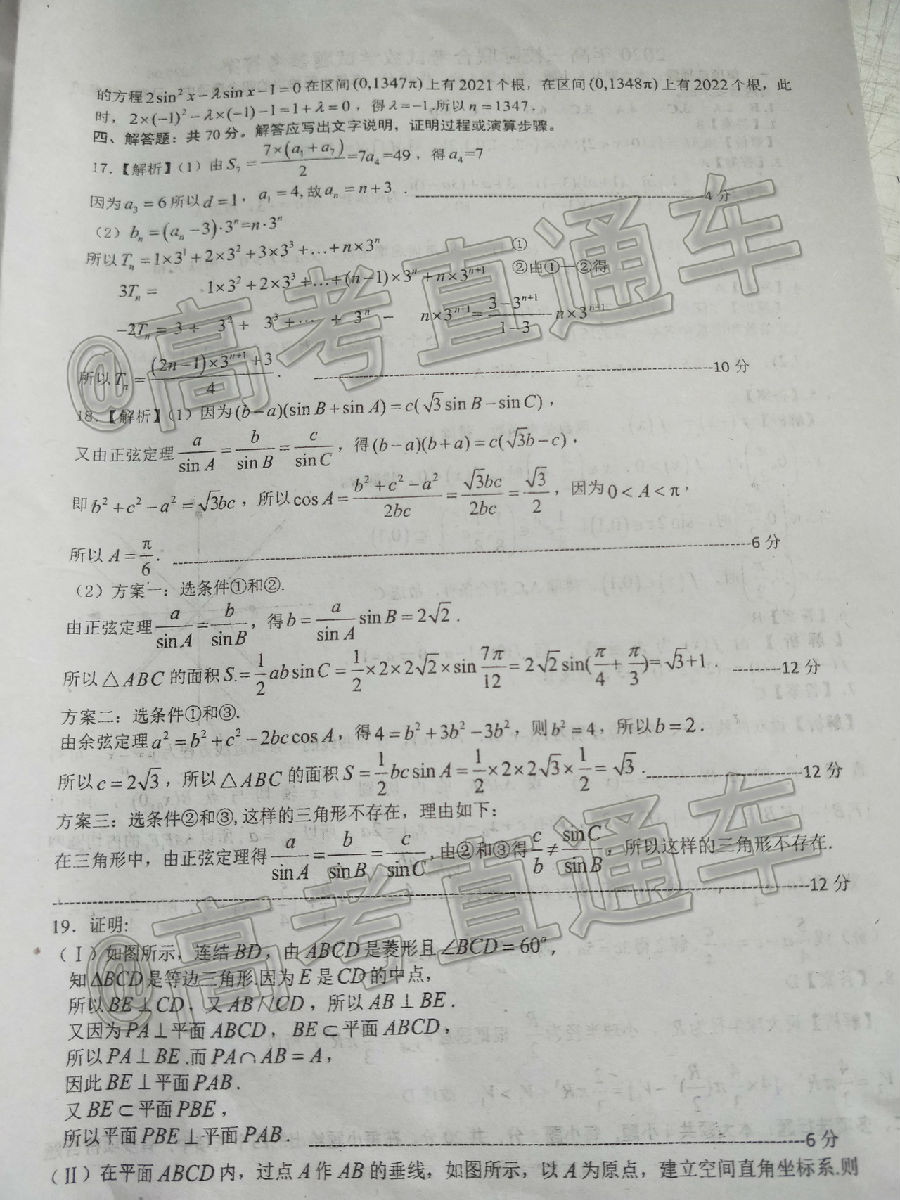 的方程2sin²x-λsinx-1=0在区间(0,1347π)上有2021个根，在区间(0,1348π)上有2022个根，此
时，2×(-1)²-λ×(-1)-1=1+λ=0，得λ=-1,所以n=1347.
四、解答题：共70分。解答应写出文字说明，证明过程或演算步骤。
17.【解析】(1)由S₇=7×(a₁+a₇)/2=7a₄=49，得a₄=7
因为a₃=6所以d=1，a₁=4,故aₙ=n+3. 4分
(2) bₙ=(aₙ-3)·3ⁿ=n·3ⁿ
所以Tₙ=1×3¹+2×3²+3×3³+…+n×3ⁿ ①
3Tₙ= 1×3²+2×3³+…+(n-1)×3ⁿ+n×3ⁿ⁺¹ ②由①—②得
-2Tₙ=3+ 3²+ 3³+…+ 3ⁿ- n×3ⁿ⁺¹=(3-3ⁿ⁺¹)/(1-3) - n×3ⁿ⁺¹
所以Tₙ=((2n-1)×3ⁿ⁺¹+3)/4. 10分
18.【解析】(1)因为(b-a)(sinB+sinA)=c(√3sinB-sinC)，
又由正弦定理a/sinA=b/sinB=c/sinC，得(b-a)(b+a)=c(√3b-c)，
即b²+c²-a²=√3bc，所以cosA=(b²+c²-a²)/2bc=√3bc/2bc=√3/2，因为0<A<π，
所以A=π/6. 6分
(2)方案一：选条件①和②.
由正弦定理a/sinA=b/sinB，得b=a/sinA sinB=2√2.
所以△ABC的面积S=1/2absinC=1/2×2×2√2×sin7π/12=2√2sin(π/4+π/3)=√3+1. 12分
方案二：选条件①和③.
由余弦定理a²=b²+c²-2bccosA，得4=b²+3b²-3b²，则b²=4，所以b=2.
所以c=2√3，所以△ABC的面积S=1/2bcsinA=1/2×2×2√3×1/2=√3. 12分
方案三：选条件②和③,这样的三角形不存在，理由如下：
在三角形中，由正弦定理得a/sinA=b/sinB=c/sinC,由②和③得c/b≠sinC/sinB，所以这样的三角形不存在.
12分
19. 证明:
(Ⅰ)如图所示，连结BD，由ABCD是菱形且∠BCD=60°，
知△BCD是等边三角形.因为E是CD的中点，
所以BE⊥CD，又AB//CD，所以AB⊥BE.
又因为PA⊥平面ABCD，BE⊂平面ABCD，
所以PA⊥BE.而PA∩AB=A，
因此BE⊥平面PAB.
又BE⊂平面PBE，
所以平面PBE⊥平面PAB. 6分
(Ⅱ)在平面ABCD内，过点A作AB的垂线，如图所示，以A为原点，建立空间直角坐标系.则
@高考直通车
@高考直通车